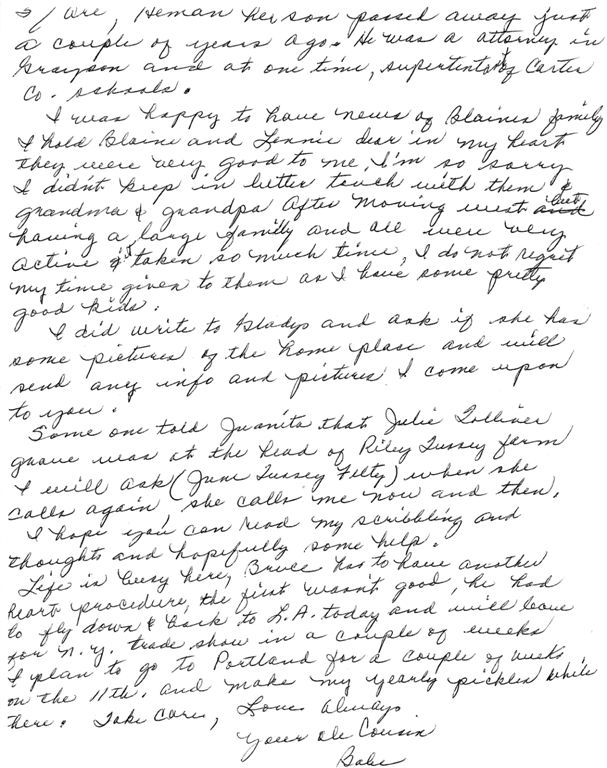 are, Heman her son passed away just
a couple of years ago. He was a attorney in
Grayson and at one time, supertent of Carter
Co. schools.
I was happy to have news of Blaines family
I hold Blaine and Lennie dear in my heart
they were very good to me, I'm so sorry
I didn't keep in better touch with them &
grandma & grandpa after moving west and but
having a large family and all were very
active & it taken so much time, I do not regret
my time given to them as I have some pretty
good kids.
I did write to Gladys and ask if she has
some pictures of the home place and will
send any info and pictures I come upon
to you.
Some one told Juanita that Julie Tolliver
grave was at the head of Riley Tussey farm
I will ask (June Tussey Filty) when she
calls again, she calls me now and then.
I hope you can read my scribbling and
thoughts and hopefully some help.
Life is busy here, Bruce has to have another
heart procedure, the first wasn't good, he had
to fly down & back to L.A. today and will leave
for N.Y. trade show in a couple of weeks
I plan to go to Portland for a couple of weeks
on the 11th. and make my yearly pickles while
there. Take Care, Love Always
Your Ole Cousin
Babe